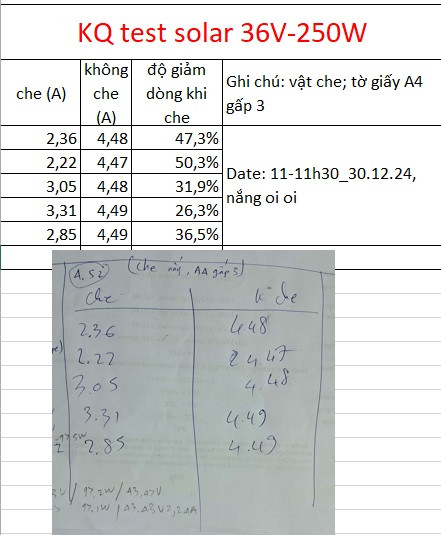 KQ test solar 36V-250W
che (A)
không
che
(A)
độ giảm
dòng khi
che
Ghi chú: vật che; tờ giấy A4
gấp 3
2,36 4,48 47,3%
2,22 4,47 50,3%
3,05 4,48 31,9%
3,31 4,49 26,3%
2,85 4,49 36,5%
Date: 11-11h30_30.12.24,
nắng oi oi
(che này, A4 gấp 3)
che K° che
2.36 4.48
2.22 4.47
3.05 4.48
3.31 4.49
2.85 4.49